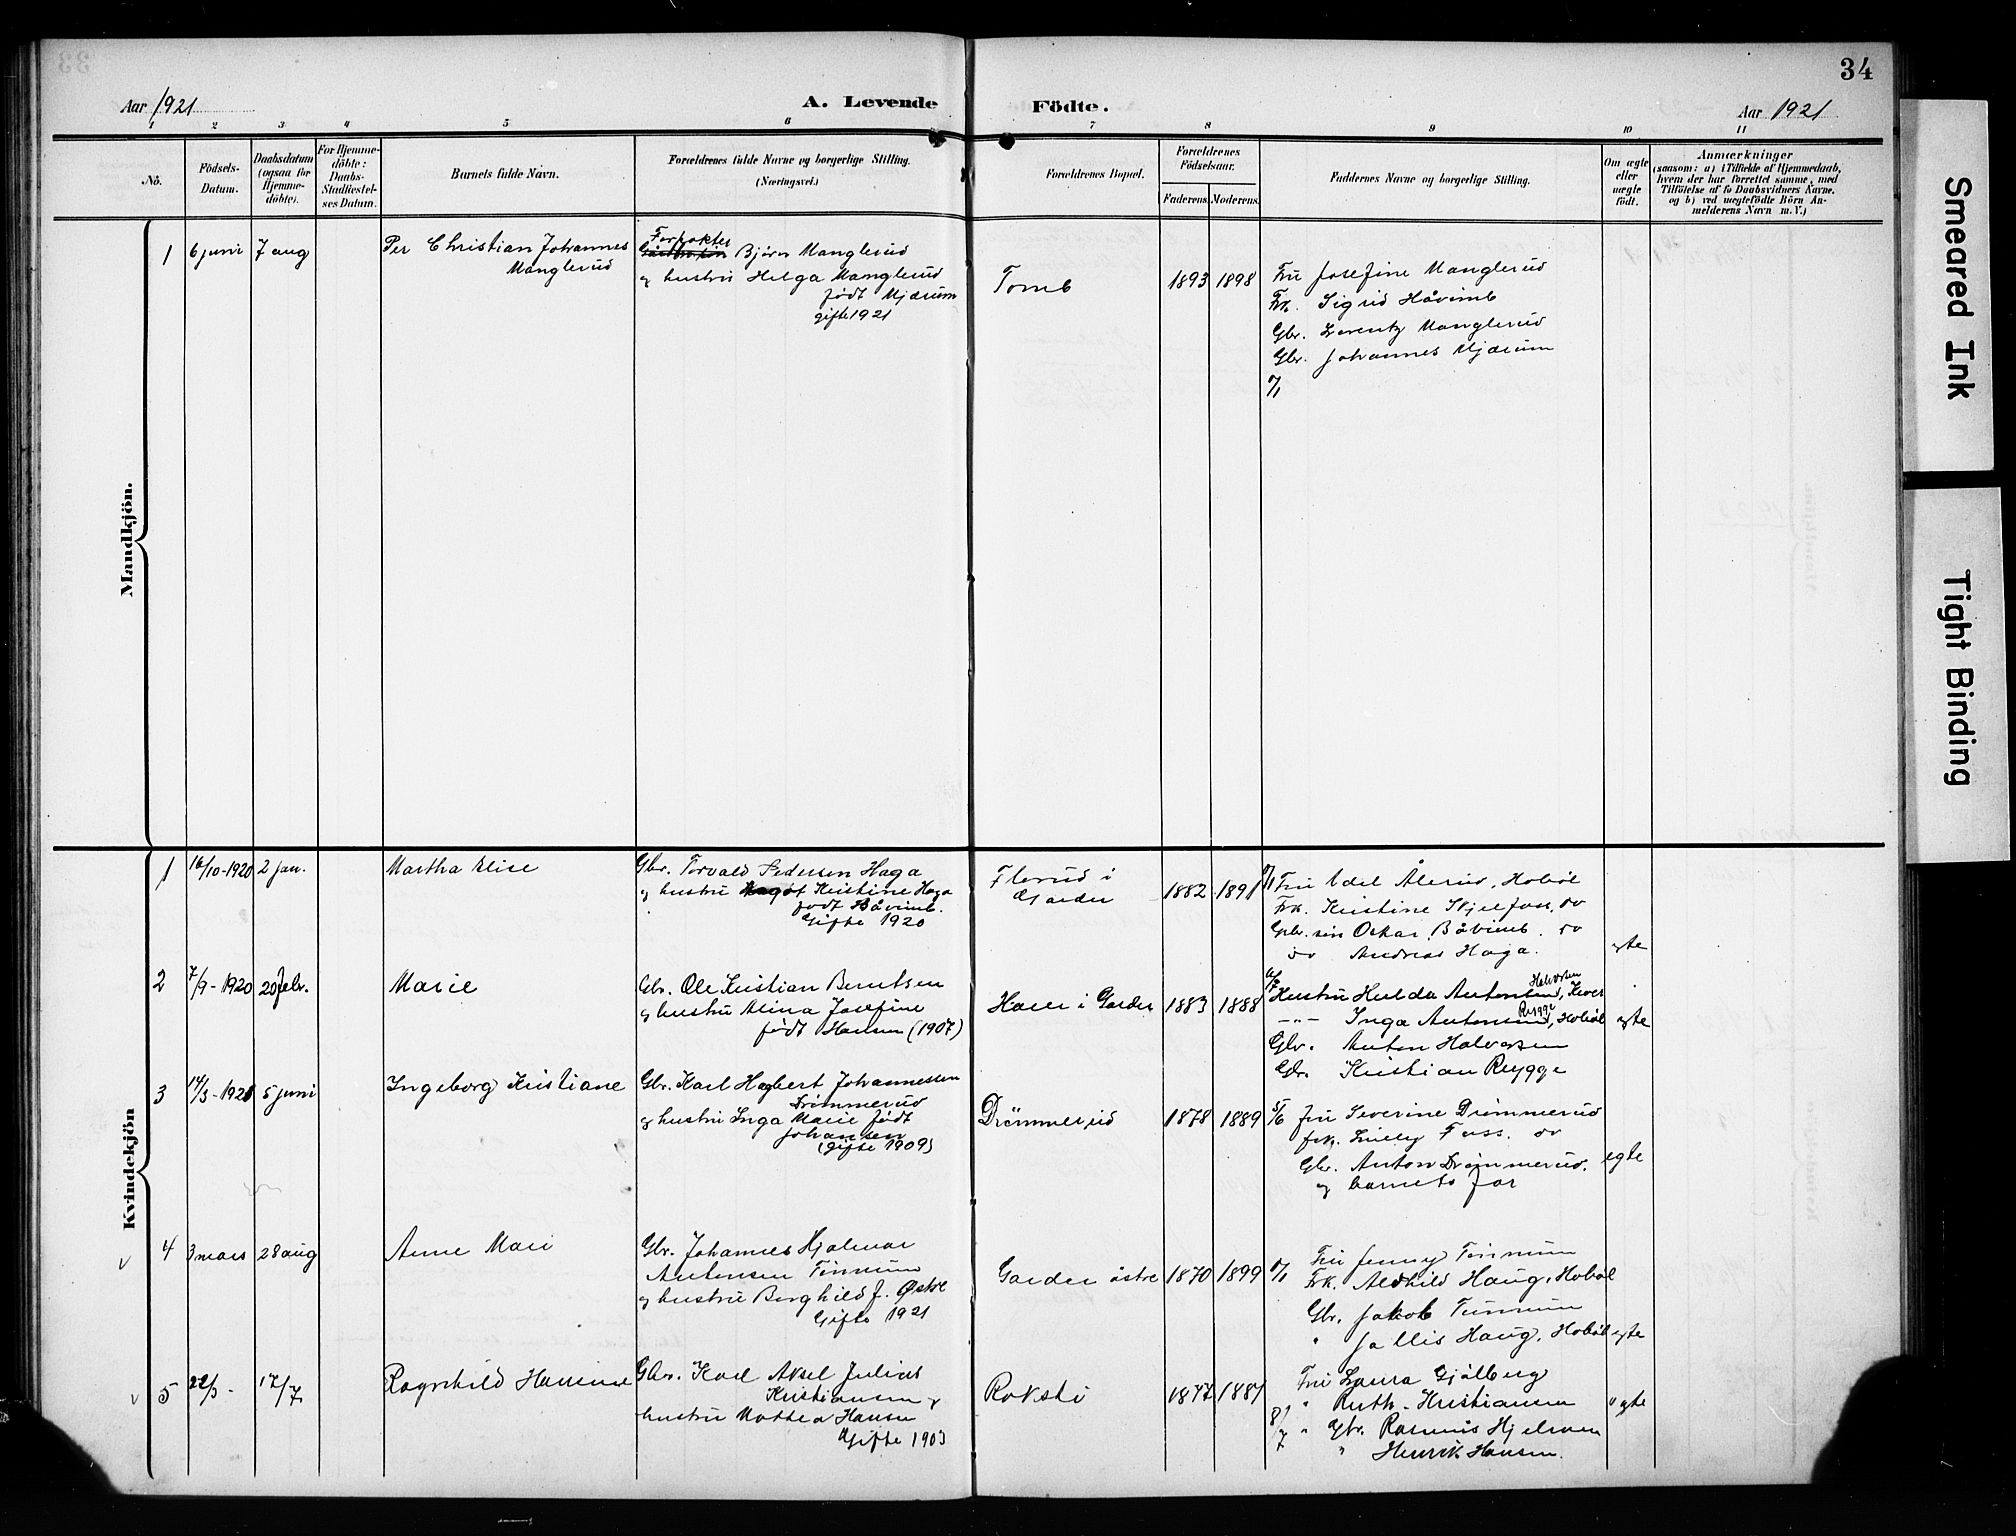 34
Aar 1921
A. Levende Födte.
Aar 1921
1 2 3 4 5 6 7 8 9 10 11
Nô.
Födsels-Datum.
Daabsdatum (ogsaa for Hjemme-döbte).
For Hjemme-döbte: Daabs-Stadfæstel-ses Datum.
Barnets fulde Navn.
Forældrenes fulde Navne og borgerlige Stilling. (Næringsvei.)
Forældrenes Bopæl.
Forældrenes Födselsaar.
Faderens. Moderens.
Faddernes Navne og borgerlige Stilling.
Om ægte eller uægte födt.
Anmærkninger
(saasom: a) i Tilfælde af Hjemmedaab, hvem der har forrettet samme, med Tilföielse af to Daabsvidners Navne, og b) ved uægtefödte Börn An-melderens Navn m. V.)
Mandkjön.
1 6 juni 7 aug
Per Christian Johannes
Manglerud
Forpakter
Bjørn Manglerud
og hustru Helga Manglerud
født Mjærum
gifte 1921
Tomb
1893 1898
Fru Josefine Manglerud
Frk. Sigrid Håvimb
Gbr. Lorentz Manglerud
Gbr. Johannes Mjærum
Kvindekjön
1 16/10-1920 2 jan.
Martha Elise
Gbr. Torvald Pedersen Haga
og hustru Kristine Haga
født Båvimb.
Gifte 1920
Florud i
Garder
1882 1891
Fru Edel Ålerud, Hobøl
Frk. Kristine Skjelfoss, do
Gbr. søn Oskar Båvimb. do
do Andreas Haga.
egte
2 7/9-1920 20 febr.
Marie
Gbr. Ole Kristian Berntsen
og hustru Alina Josefine
født Hansen (1907)
Haer i Garder
1883 1888
Halvorsen
Hustru Hulda Antonsen, Kver
Rygge
-"- Inga Antonsen, Hobøl
Gbr. Anton Halvorsen
Gbr. Kristian Rygge
egte
3 14/3-1921 5 juni
Ingeborg Kristiane
Gbr. Karl Hagbert Johannessen
Drømmerud
og hustru Inga Marie født
Johansen
(gifte 1909)
Drømmerud
1878 1889
5/6 Fru Severine Drømmerud
frk. Emely Foss. do
Gbr. Anton Drømmerud.
og barnets far
egte
4 3 mars 28 aug
Anne Mari
Gbr. Johannes Hjalmar
Antonsen Tømmum
og hustru Borghild f. Østre
Gifte 1921
Garder østre
1870 1899
Fru Jenny Tømmum
Frk. Aldhild Haug, Hobøl
Gbr. Jakob Tømmum
" Haug, Hobøl
egte
5 22/3- 17/7
Ragnhild Hansine
Gbr. Karl Aksel Julius
Kristiansen og
hustru Mathea Hansen
Gifte 1903
Roksti
1877 1881
Fru Laura Gjølberg
" Ruth Kristiansen
" Gbr. Rasmus Hjelmen
" Henrik Hansen.
egte
Smeared Ink
Tight Binding